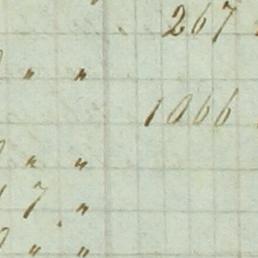 267
" "
1066
" "
7 "
" "